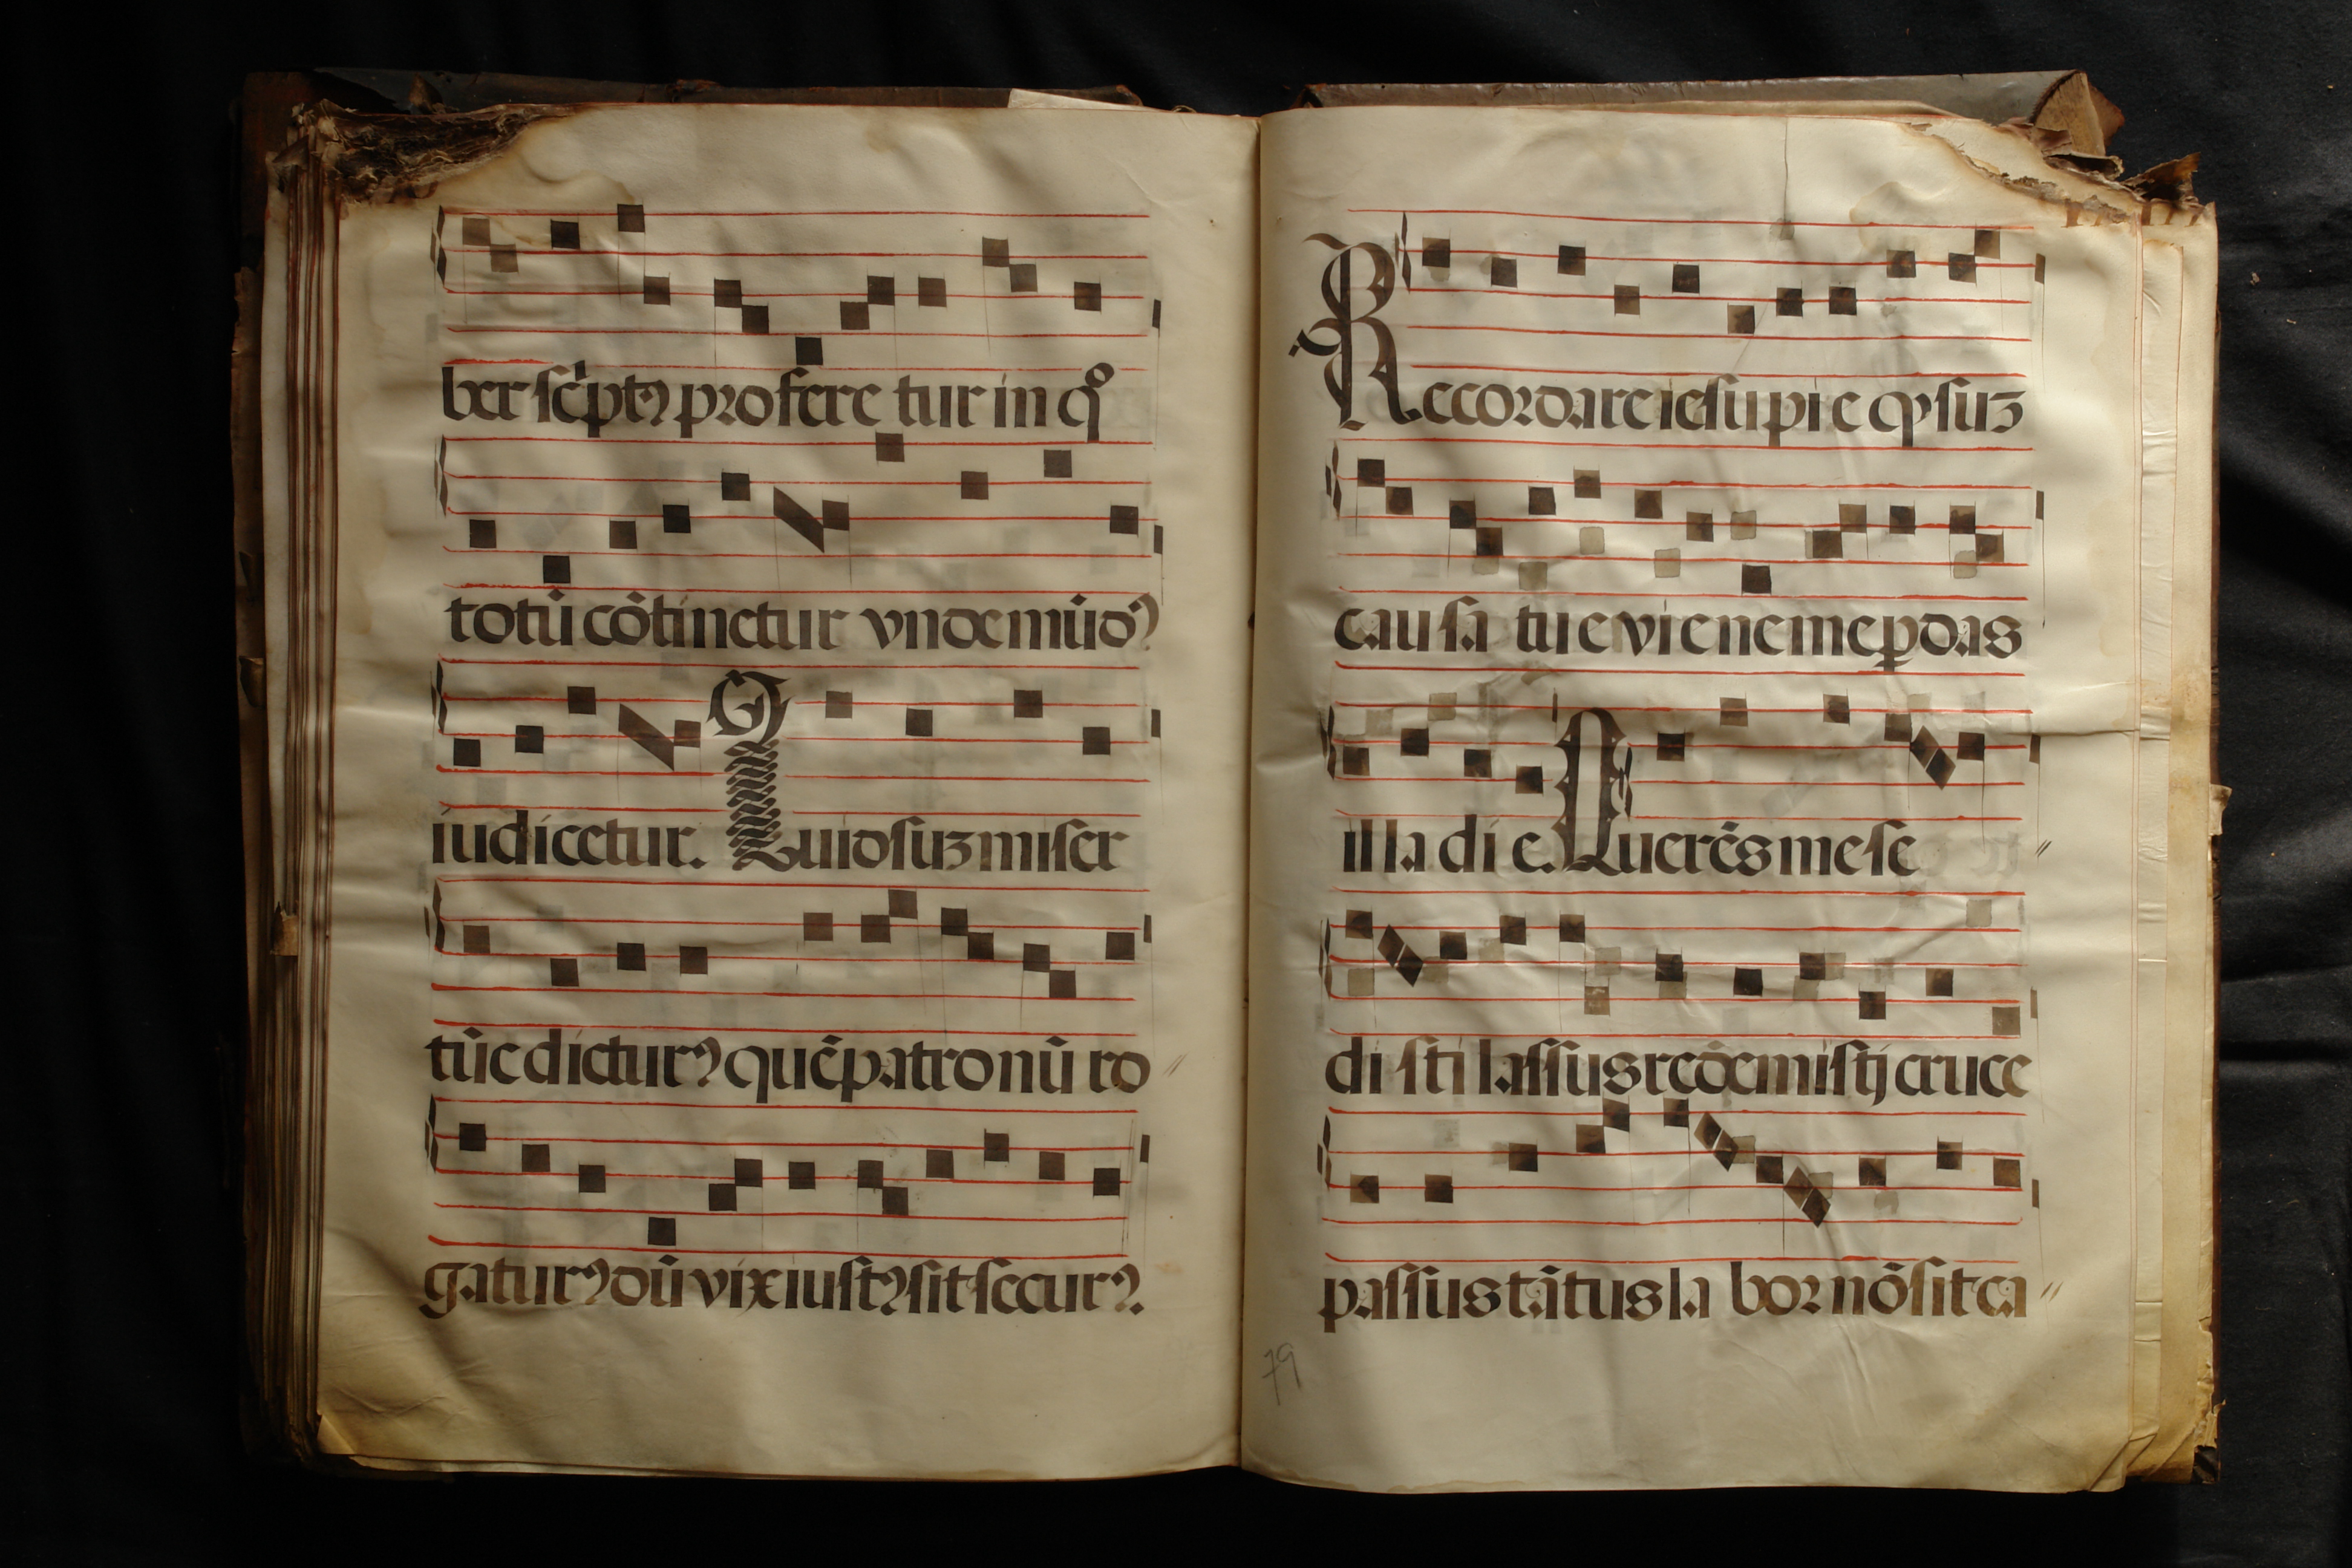 ber sc̃ptꝰ profere tur in q̊
totũ cõtinetur vnde mũdꝰ
iudicetur. Quid sum miser
tũc dicturꝰ quẽ patronũ ro
gaturꝰ dũ vix iustꝰ sit securꝰ.
Recordare iesu pie ꝙ sum
causa tue vie ne me ꝑdas
illa die. Querẽs me se
disti lassus redemisti cruce
passus tãtus labor nõ sit ca
79